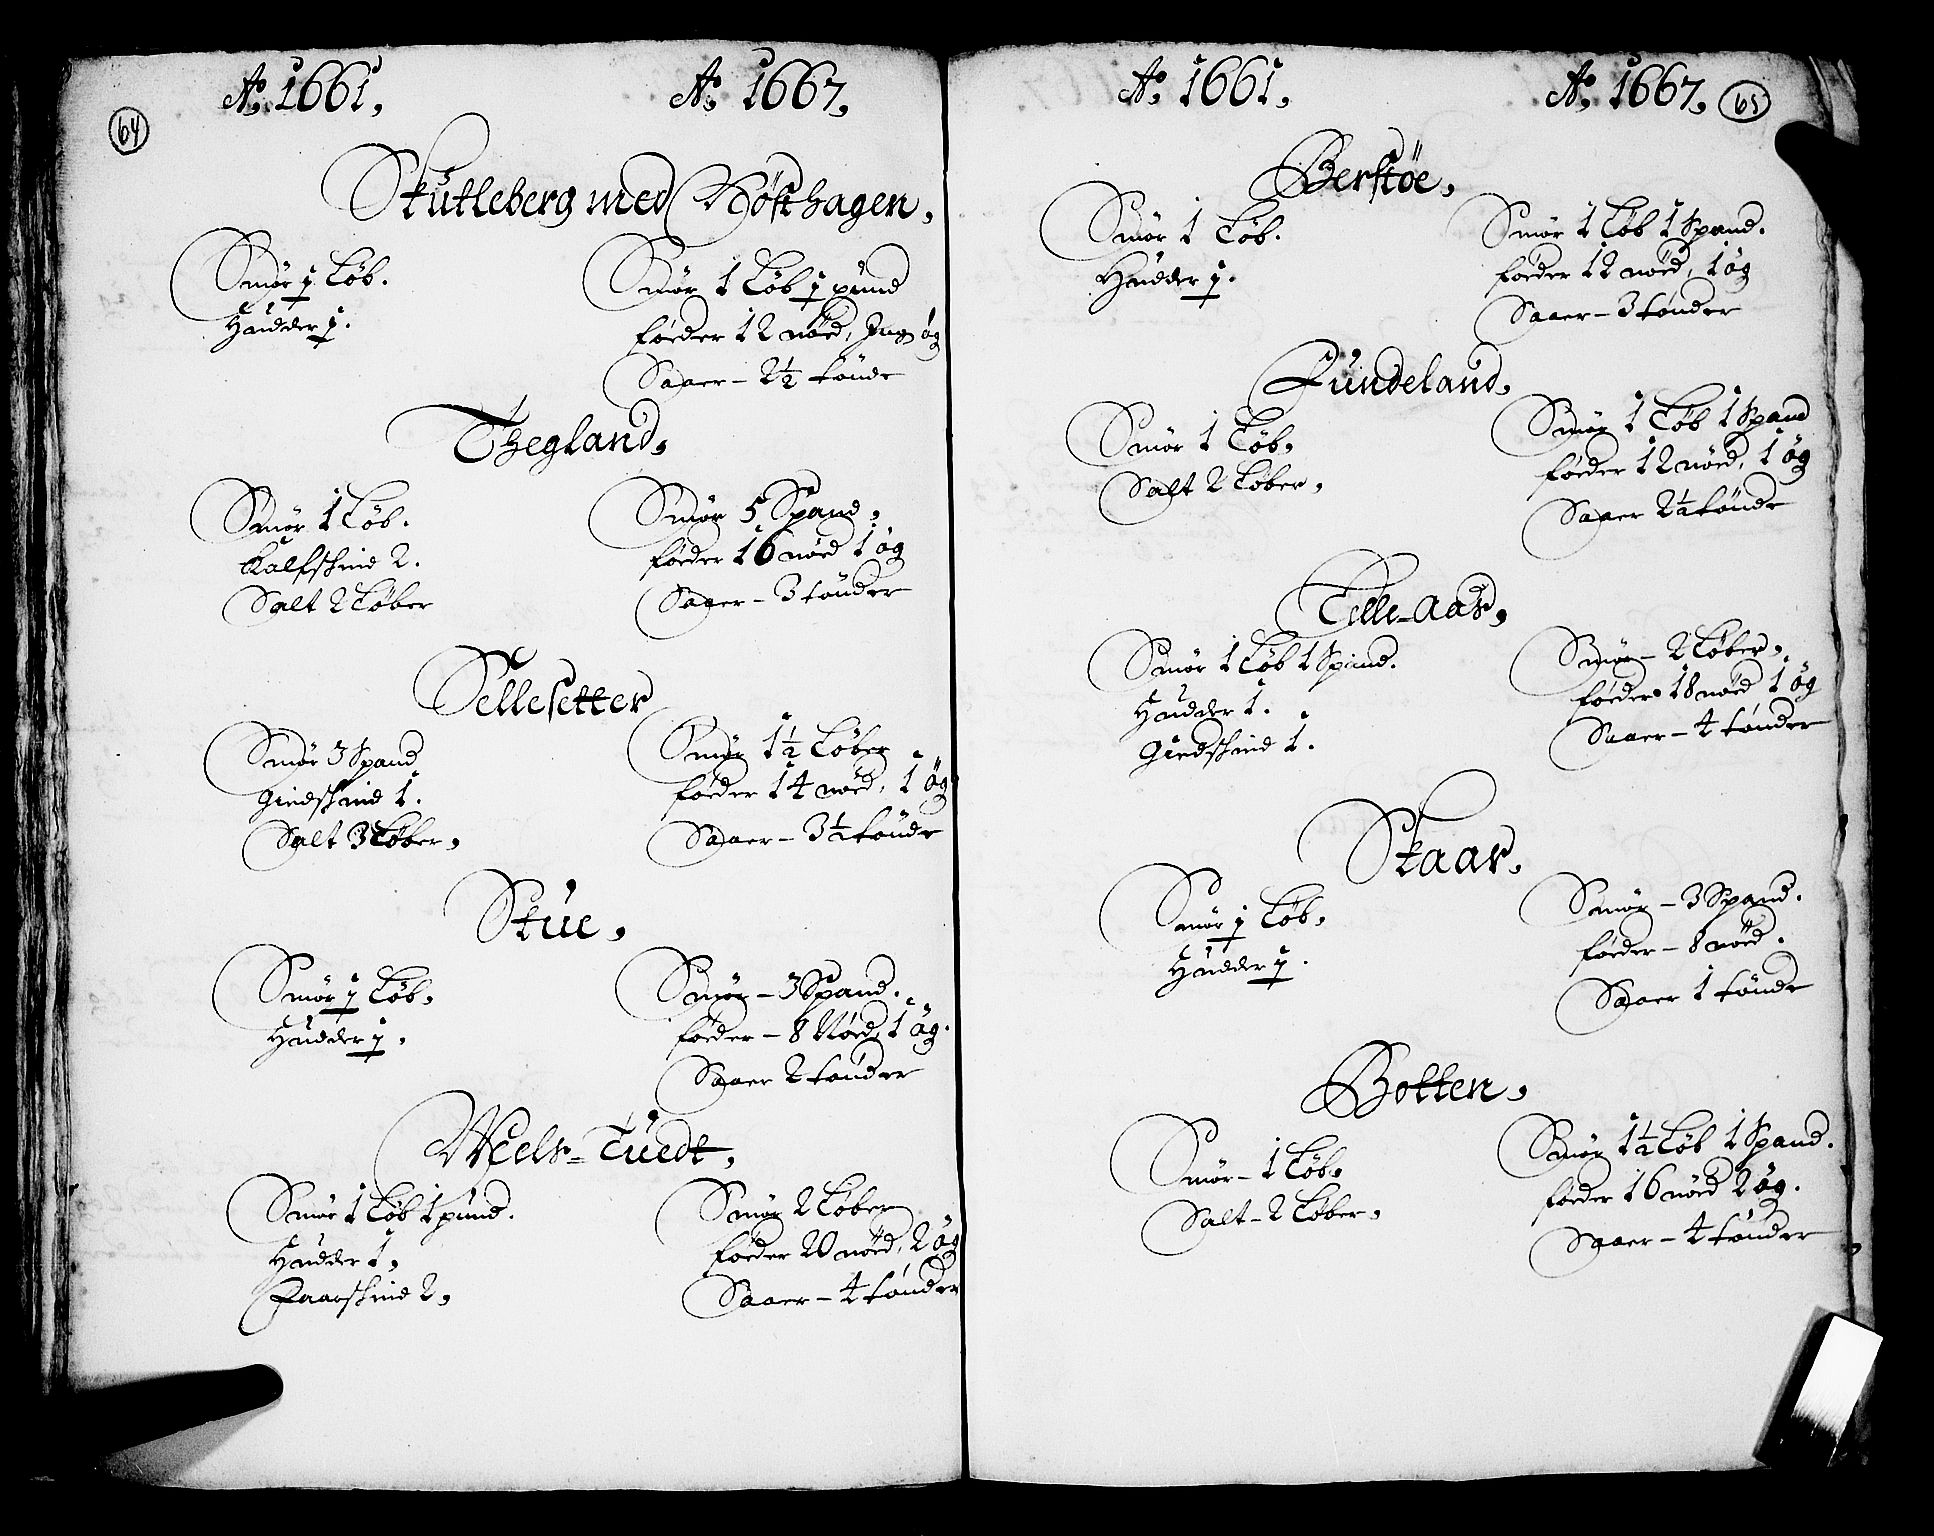 64
Ao. 1661, Ao. 1667,
Stutleberg med Høsthagen,
Smør j Løb. Smør 1 Løb j pund
Huder j.føder 12 nød, Ing øg
Saaer - 2½ tønde
Thegland,
Smør 1 Løb. Smør 5 Spand,
Kalfskind 2. føder 16 nød 1 øg
Salt 2 Løber Saaer - 3 tønder
Sellesetter
Smør 3 Spand Smør 1½ Løber
Giedskind 1. føder 14 nød, 1 øg
Salt 3 Løber, Saaer - 3½ tønde
Stue,
Smør j Løb, Smør - 3 Spand.
Hudder j, føder - 8 Nød, 1 øg.
Saaer 2 tønder
Weels-Tuedt,
Smør 1 Løb 1 pund. Smør 2 Løber
Hudder 1, føder 20 nød, 2 øg
Faarskind 2, Saaer - 4 tønder
Ao. 1661, Ao. 1667, 65
Berstøe,
Smør 1 Løb. Smør 1 Løb 1 Spand.
Hudder j. føder 12 nød, 1 øg
Saaer - 3 tønder
Fundeland,
Smør 1 Løb, Smør 1 Løb 1 Spand
Salt 2 Løber, føder 12 nød, 1 øg
Saaer 2½ tønde
Telle-Aas,
Smør 1 Løb 1 Spand. Smør - 2 Løber,
Hudder 1. føder 18 nød 1 øg
Giedskind 1. Saaer - 4 tønder
Skaar,
Smør j Løb, Smør - 3 Spand.
Hudder j. føder - 8 nød.
Saaer 1 tønde
Botten,
Smør - 1 Løb, Smør 1½ Løb 1 Spand.
Salt - 2 Løber, føder 16 nød 2 øg.
Saaer - 4 tønder